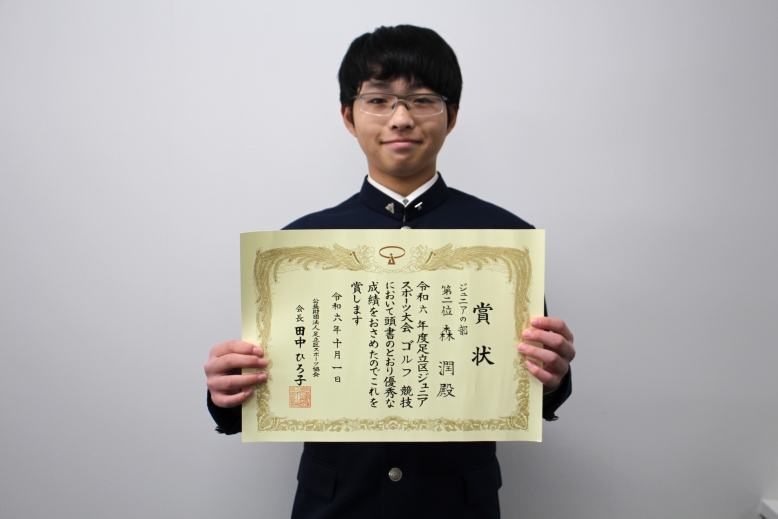 賞状
ジュニアの部
第二位 森 潤 殿
令和六年度足立区ジュニア
スポーツ大会 ゴルフ 競技
において頭書のとおり優秀な
成績をおさめたのでこれを
賞します
令和六年十月一日
公益財団法人足立区スポーツ協会
会長 田中 ひろ子